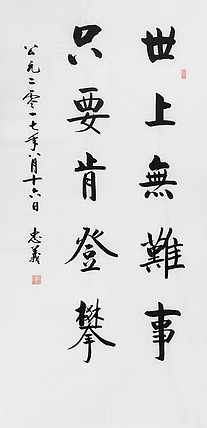 世上無難事
只要肯登攀
公元二零一七年八月十六日 忠義